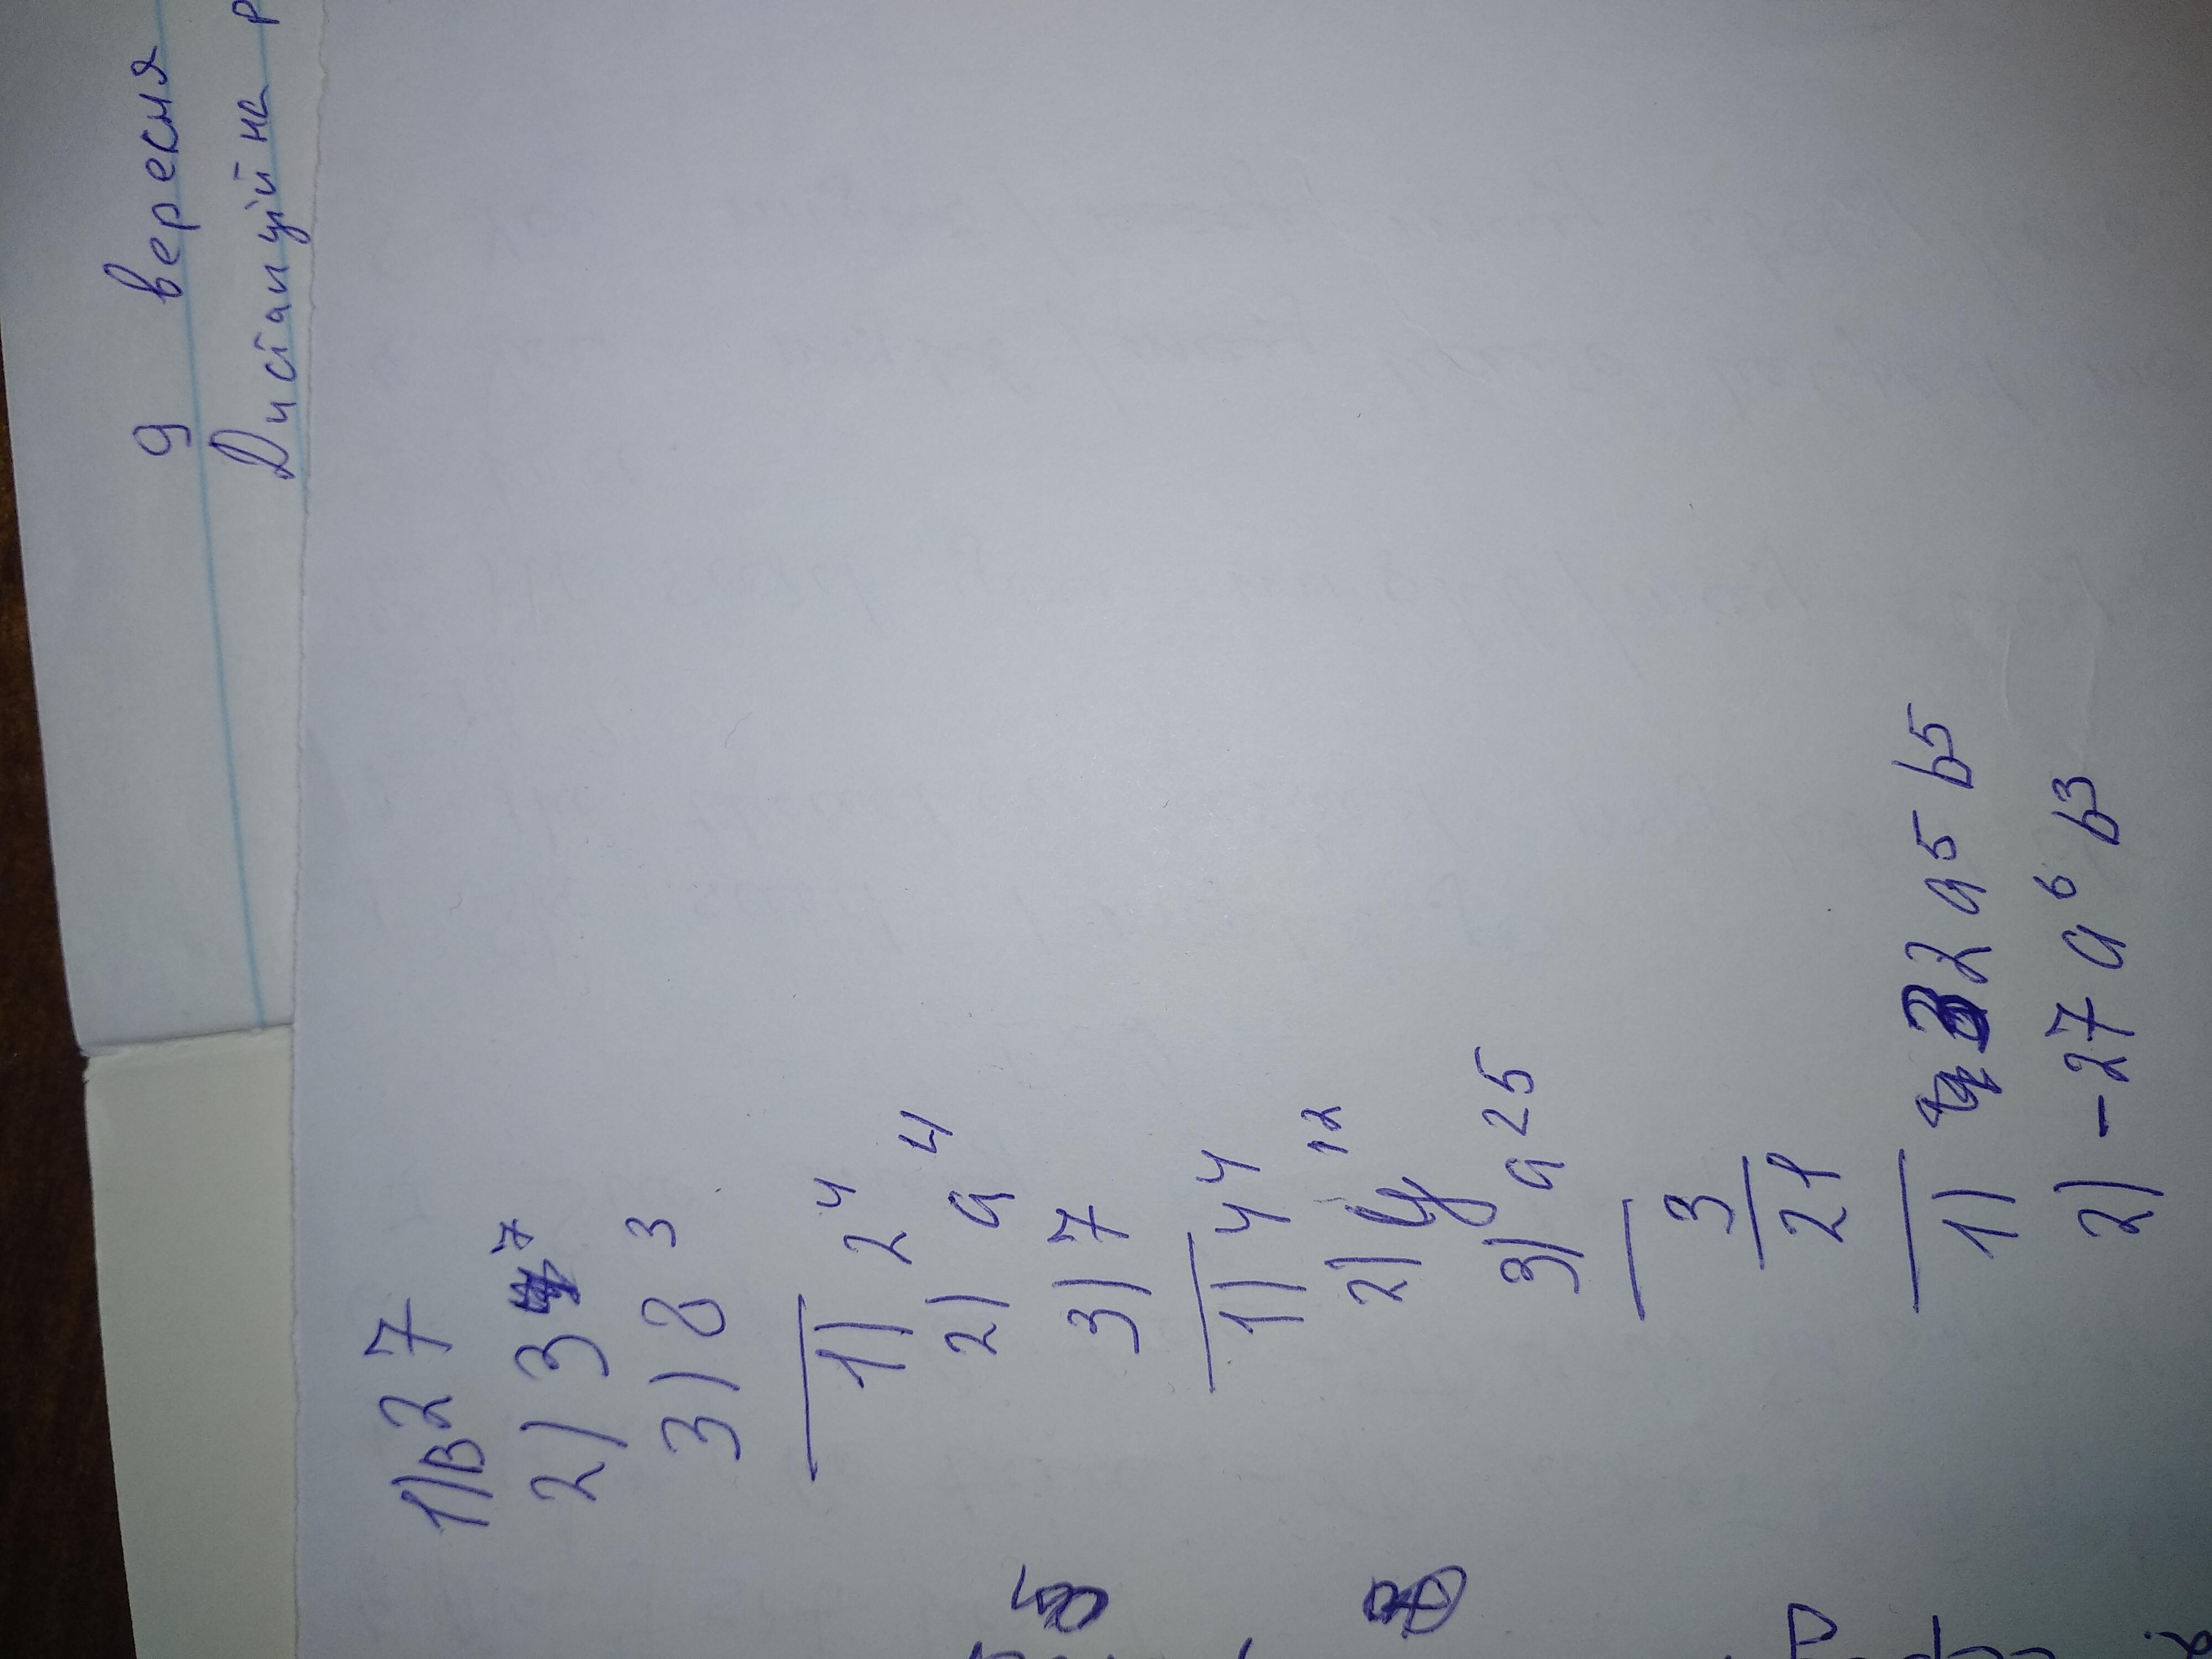 9 вересня
Дистанційна р
1) в 2 7
2) 3 ⁷
3) 8 ³
1) 2⁴
2) a⁴
3) 7
1) 4⁴
2) y¹²
3) a²⁵
3
21
1) 32 a⁵ b⁵
2) -27 a⁶ b³